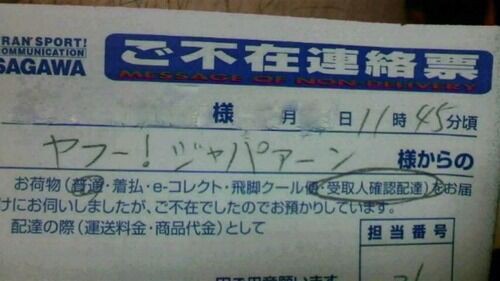 TRAN SPORT!
COMMUNICATION
SAGAWA
ご不在連絡票
MESSAGE OF NON-DELIVERY
様 月 日 11時 45分頃
ヤフー! ジャパァーン 様からの
お荷物(普通・着払・e-コレクト・飛脚クール便・受取人確認配達)をお届
けにお伺いしましたが、ご不在でしたのでお預かりしています。
配達の際(運送料金・商品代金)として
担当番号